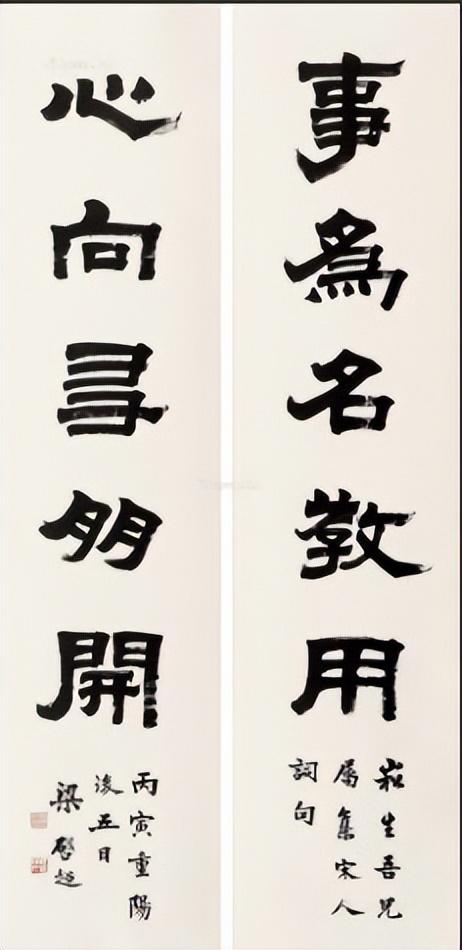 事為名敎用
崧生吾兄
屬集宋人
詞句
心向友朋開
丙寅重陽
後五日
梁啟超